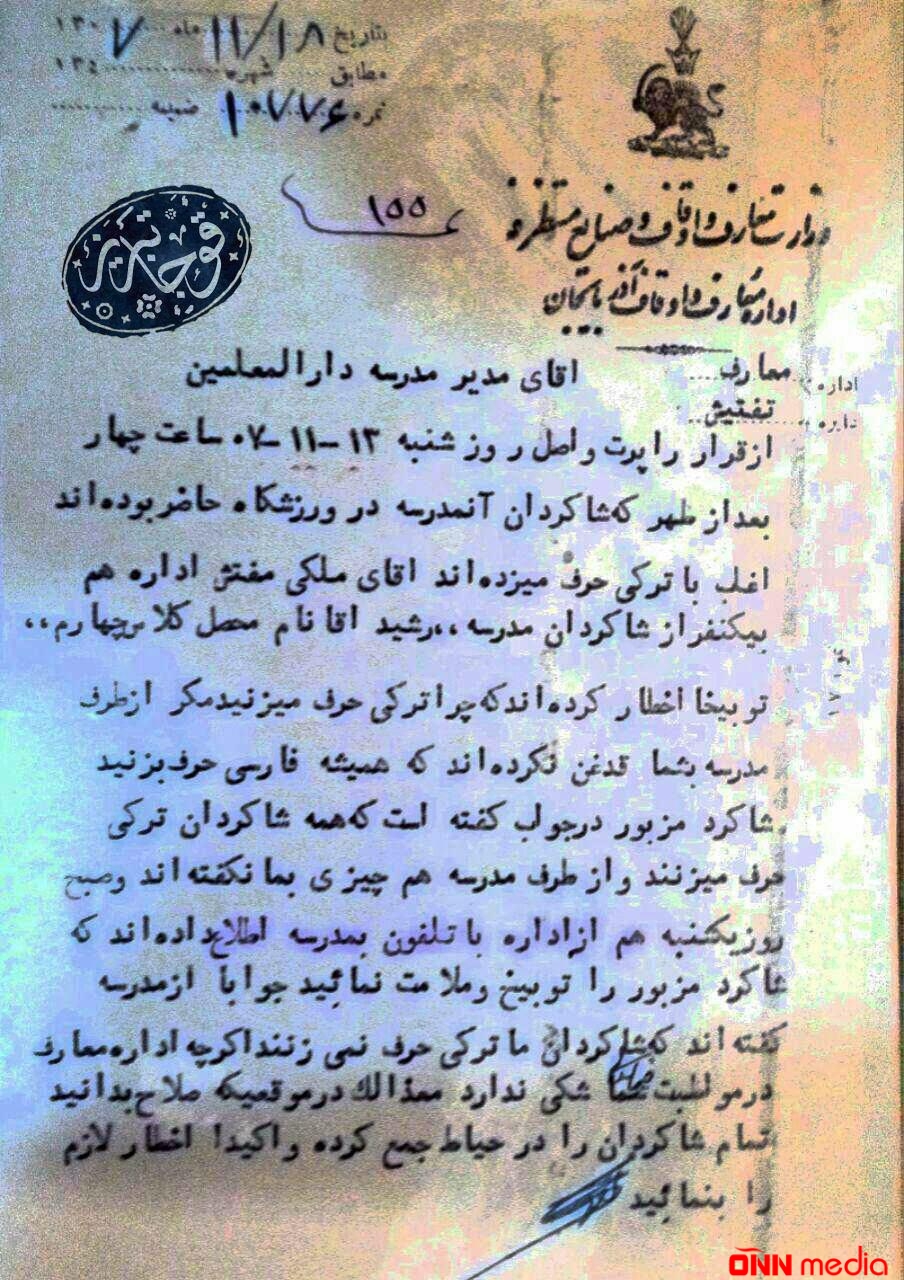 بتاریخ ۱۱/۱۸ ماه ۱۳۰۷
مطابق شهر ۱۳۴
نمره ۱۰۷۷۶ ضمیمه
۱۵۵
قوجا تبریز
وزارت معارف و اوقاف و صنایع مستظرفه
اداره معارف و اوقاف آذربایجان
اداره معارف آقای مدیر مدرسه دارالمعلمین
دایره تفتیش
ازقرار راپورت واصل روز شنبه ۱۳-۱۱-۰۷ ساعت چهار
بعداز ظهر که شاکردان آنمدرسه در ورزشکاه حاضر بوده اند
اغلب با ترکی حرف میزده اند اقای ملکی مفتش اداره هم
بیکنفراز شاکردان مدرسه ،،رشید اقا نام محصل کلاس چهارم،،
توبیخا اخطار کرده اند که چرا ترکی حرف میزنید مکر ازطرف
مدرسه بشما قدغن نکرده اند که همیشه فارسی حرف بزنید
شاکرد مزبور درجواب کفته است که همه شاکردان ترکی
حرف میزنند واز طرف مدرسه هم چیزی بما نکفته اند وصبح
روزیکشنبه هم ازاداره با تلفون بمدرسه اطلاع داده اند که
شاکرد مزبور را توبیخ وملامت نمائید جوابا ازمدرسه
کفته اند که شاکردان ما ترکی حرف نمی زنند اکرچه اداره معارف
درمواظبت شما شکی ندارد معذالك درموقعیکه صلاح بدانید
تمام شاکردان را در حیاط جمع کرده واکیدا اخطار لازم
را بنمائید
ONN media